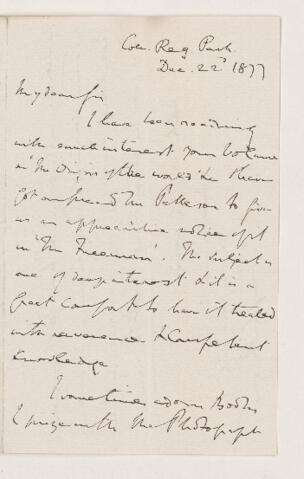 Coll. Reg. Park.
Dec. 22d 1877
My dear Sir
I have been reading
with much interest your volume
on 'The Origin of the World' & have
got our friend Mr Patterson to give
us an appreciative notice of it
in 'The Freeman'. The subject is
one of deep interest & it is a
great comfort to have it treated
with reverence & competent
knowledge
I sometimes adorn Books
I prize with the Photograph